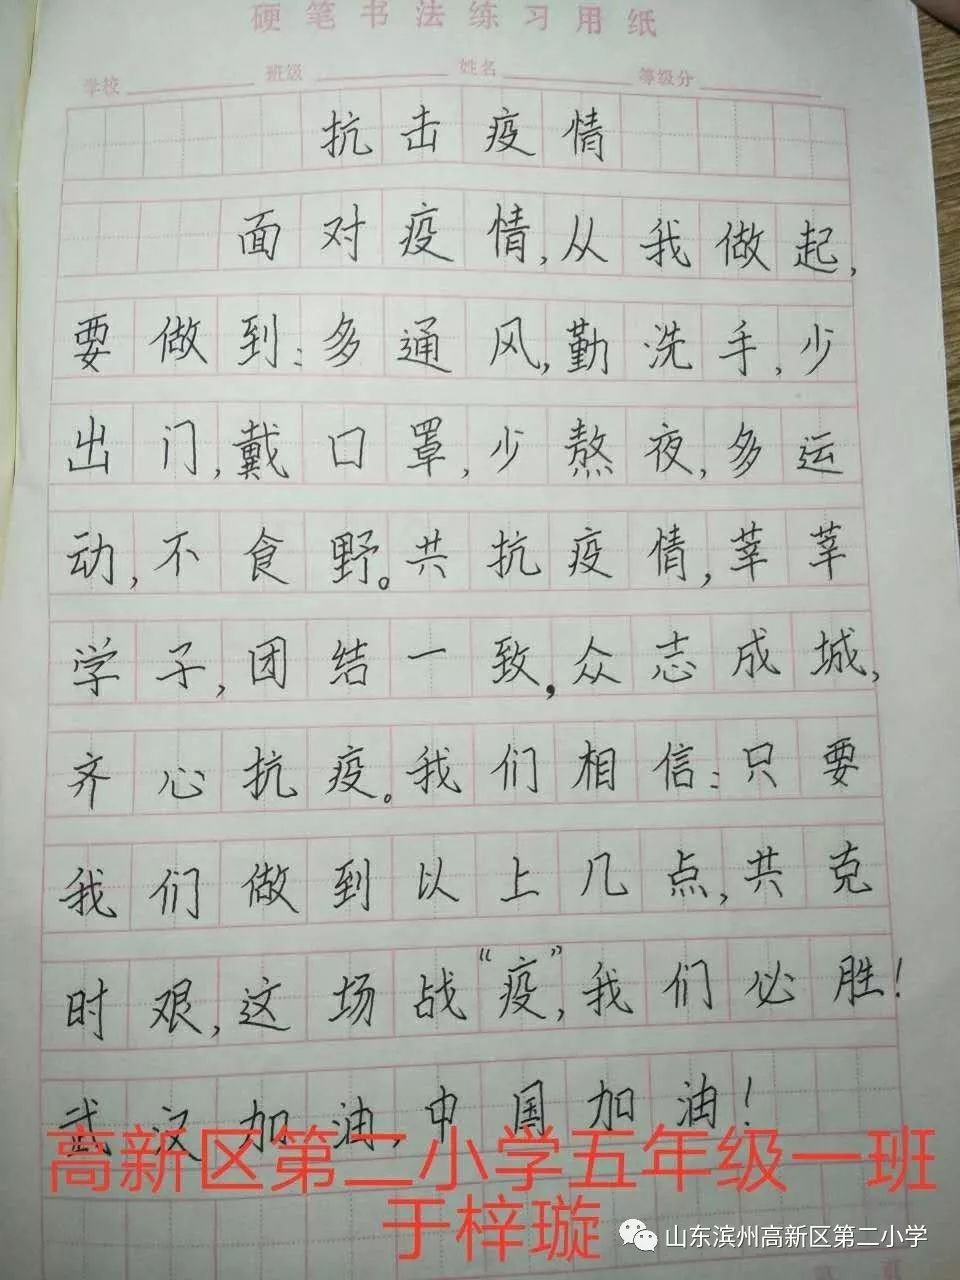 硬笔书法练习用纸
学校 班级 姓名 等级分
抗击疫情
面对疫情,从我做起,
要做到:多通风,勤洗手,少
出门,戴口罩,少熬夜,多运
动,不食野。共抗疫情,莘莘
学子,团结一致,众志成城,
齐心抗疫。我们相信:只要
我们做到以上几点,共克
时艰,这场战“疫”,我们必胜!
武汉加油,中国加油!
高新区第二小学五年级一班
于梓璇
山东滨州高新区第二小学